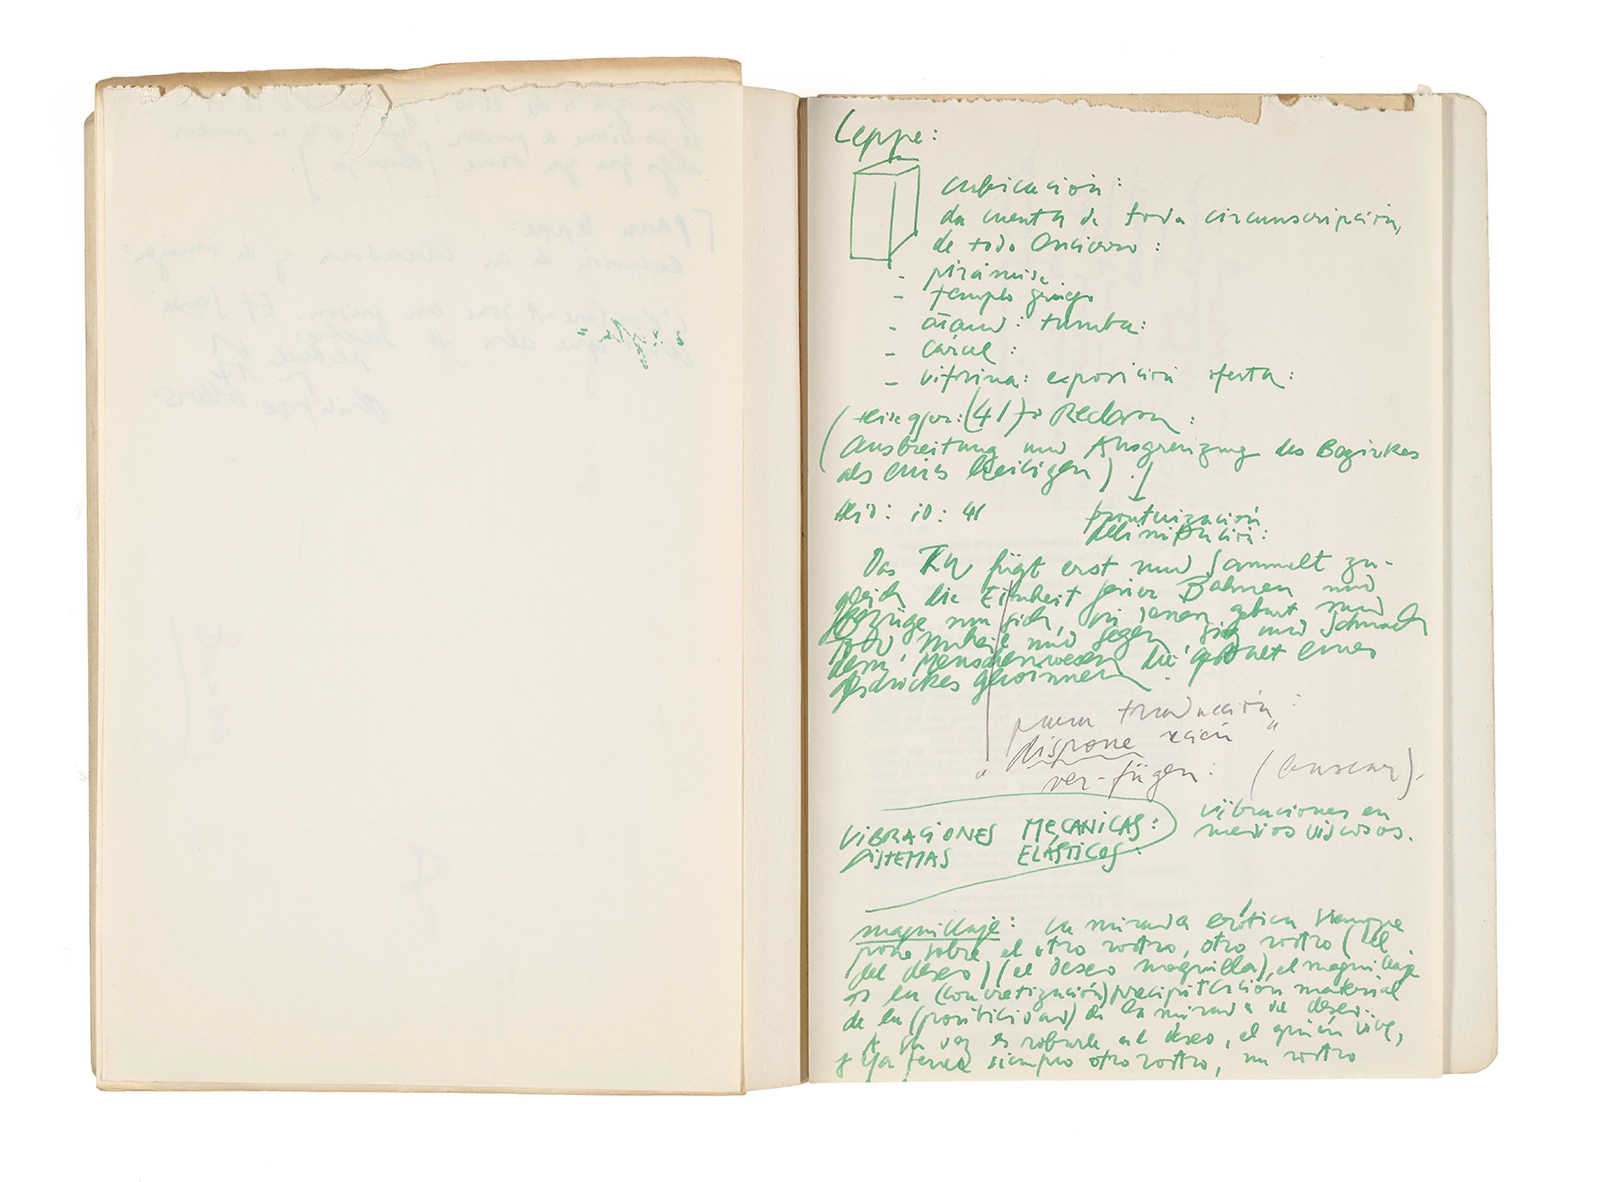 Leppe:
cubicación:
da cuenta de toda circunscripción,
de todo Encierro:
- pirámide
- templo griego
- ataud: tumba:
- cárcel:
- vitrina: exposición oferta:
(41) Reclam:
(Ausbreitung und Ausgrenzung des Bezirkes
als eines Heiligen)
Heid: id: 41
fronterización
delimitación:
Das Werk fügt erst und sammelt zu-
gleich die Einheit jener Bahnen und
Bezüge um sich, in denen Geburt und
Tod Unheil und Segen, Sieg und Schmach
dem Menschenwesen die Gestalt eines
Geschickes gewinnen.
para traducción:
"dispone
ver-fügen: (buscar).
VIBRACIONES MECANICAS:
SISTEMAS ELÁSTICOS:
vibraciones en
medios viscosos.
maquillaje: la mirada erótica siempre
pone sobre el otro rostro, otro rostro (el
del deseo) (el deseo maquilla), el maquillaje
es la (concretización) precipitación material
de la (positividad) de la mirada de deseo:
A su vez es robarle al deseo, el
siempre otro rostro, un rostro